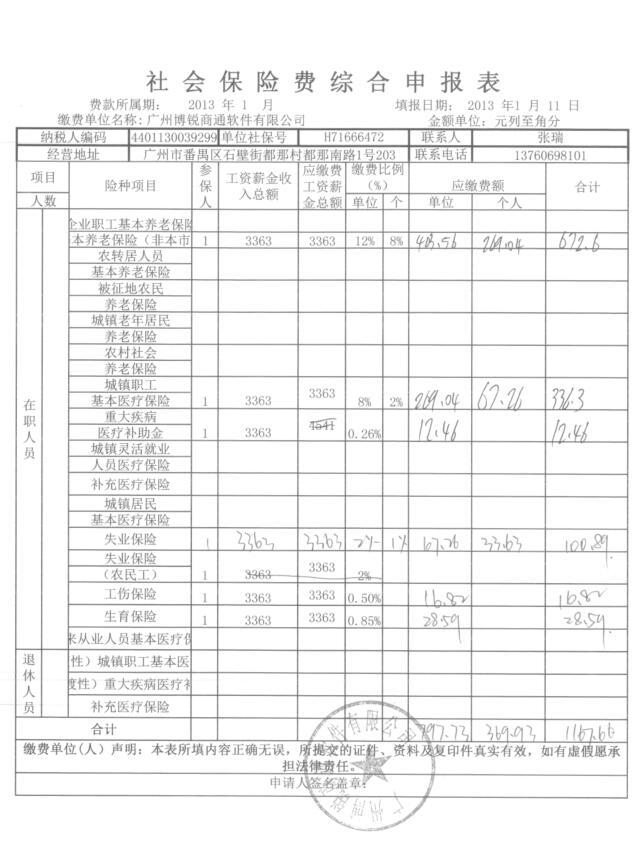 社会保险费综合申报表
费款所属期: 2013 年 1 月 填报日期: 2013 年1 月 11 日
缴费单位名称: 广州博锐商通软件有限公司 金额单位: 元列至角分
纳税人编码 4401130039299 单位社保号 H71666472 联系人 张瑞
经营地址 广州市番禺区石壁街都那村都那南路1号203 联系电话 13760698101
项目 险种项目 参保人 工资薪金收入总额 应缴费工资薪金总额 缴费比例(%) 应缴费额 合计
人数 单位 个 单位 个人
在职人员
企业职工基本养老保险
本养老保险（非本市 1 3363 3363 12% 8% 403.56 269.04 672.6
农转居人员
基本养老保险
被征地农民
养老保险
城镇老年居民
养老保险
农村社会
养老保险
城镇职工
基本医疗保险 1 3363 3363 8% 2% 269.04 67.26 336.3
重大疾病
医疗补助金 1 3363 4541 0.26% 12.46 12.46
城镇灵活就业
人员医疗保险
补充医疗保险
城镇居民
基本医疗保险
失业保险 1 3363 3363 2% 1% 67.26 33.63 100.89
失业保险
（农民工） 1 3363 3363 2%
工伤保险 1 3363 3363 0.50% 16.82 16.82
生育保险 1 3363 3363 0.85% 28.59 28.59
来从业人员基本医疗保
退休人员
性）城镇职工基本医
度性）重大疾病医疗补
补充医疗保险
合计 797.73 369.93 1167.66
缴费单位(人）声明：本表所填内容正确无误，所提交的证件、资料及复印件真实有效，如有虚假愿承
担法律责任。
申请人签名盖章: